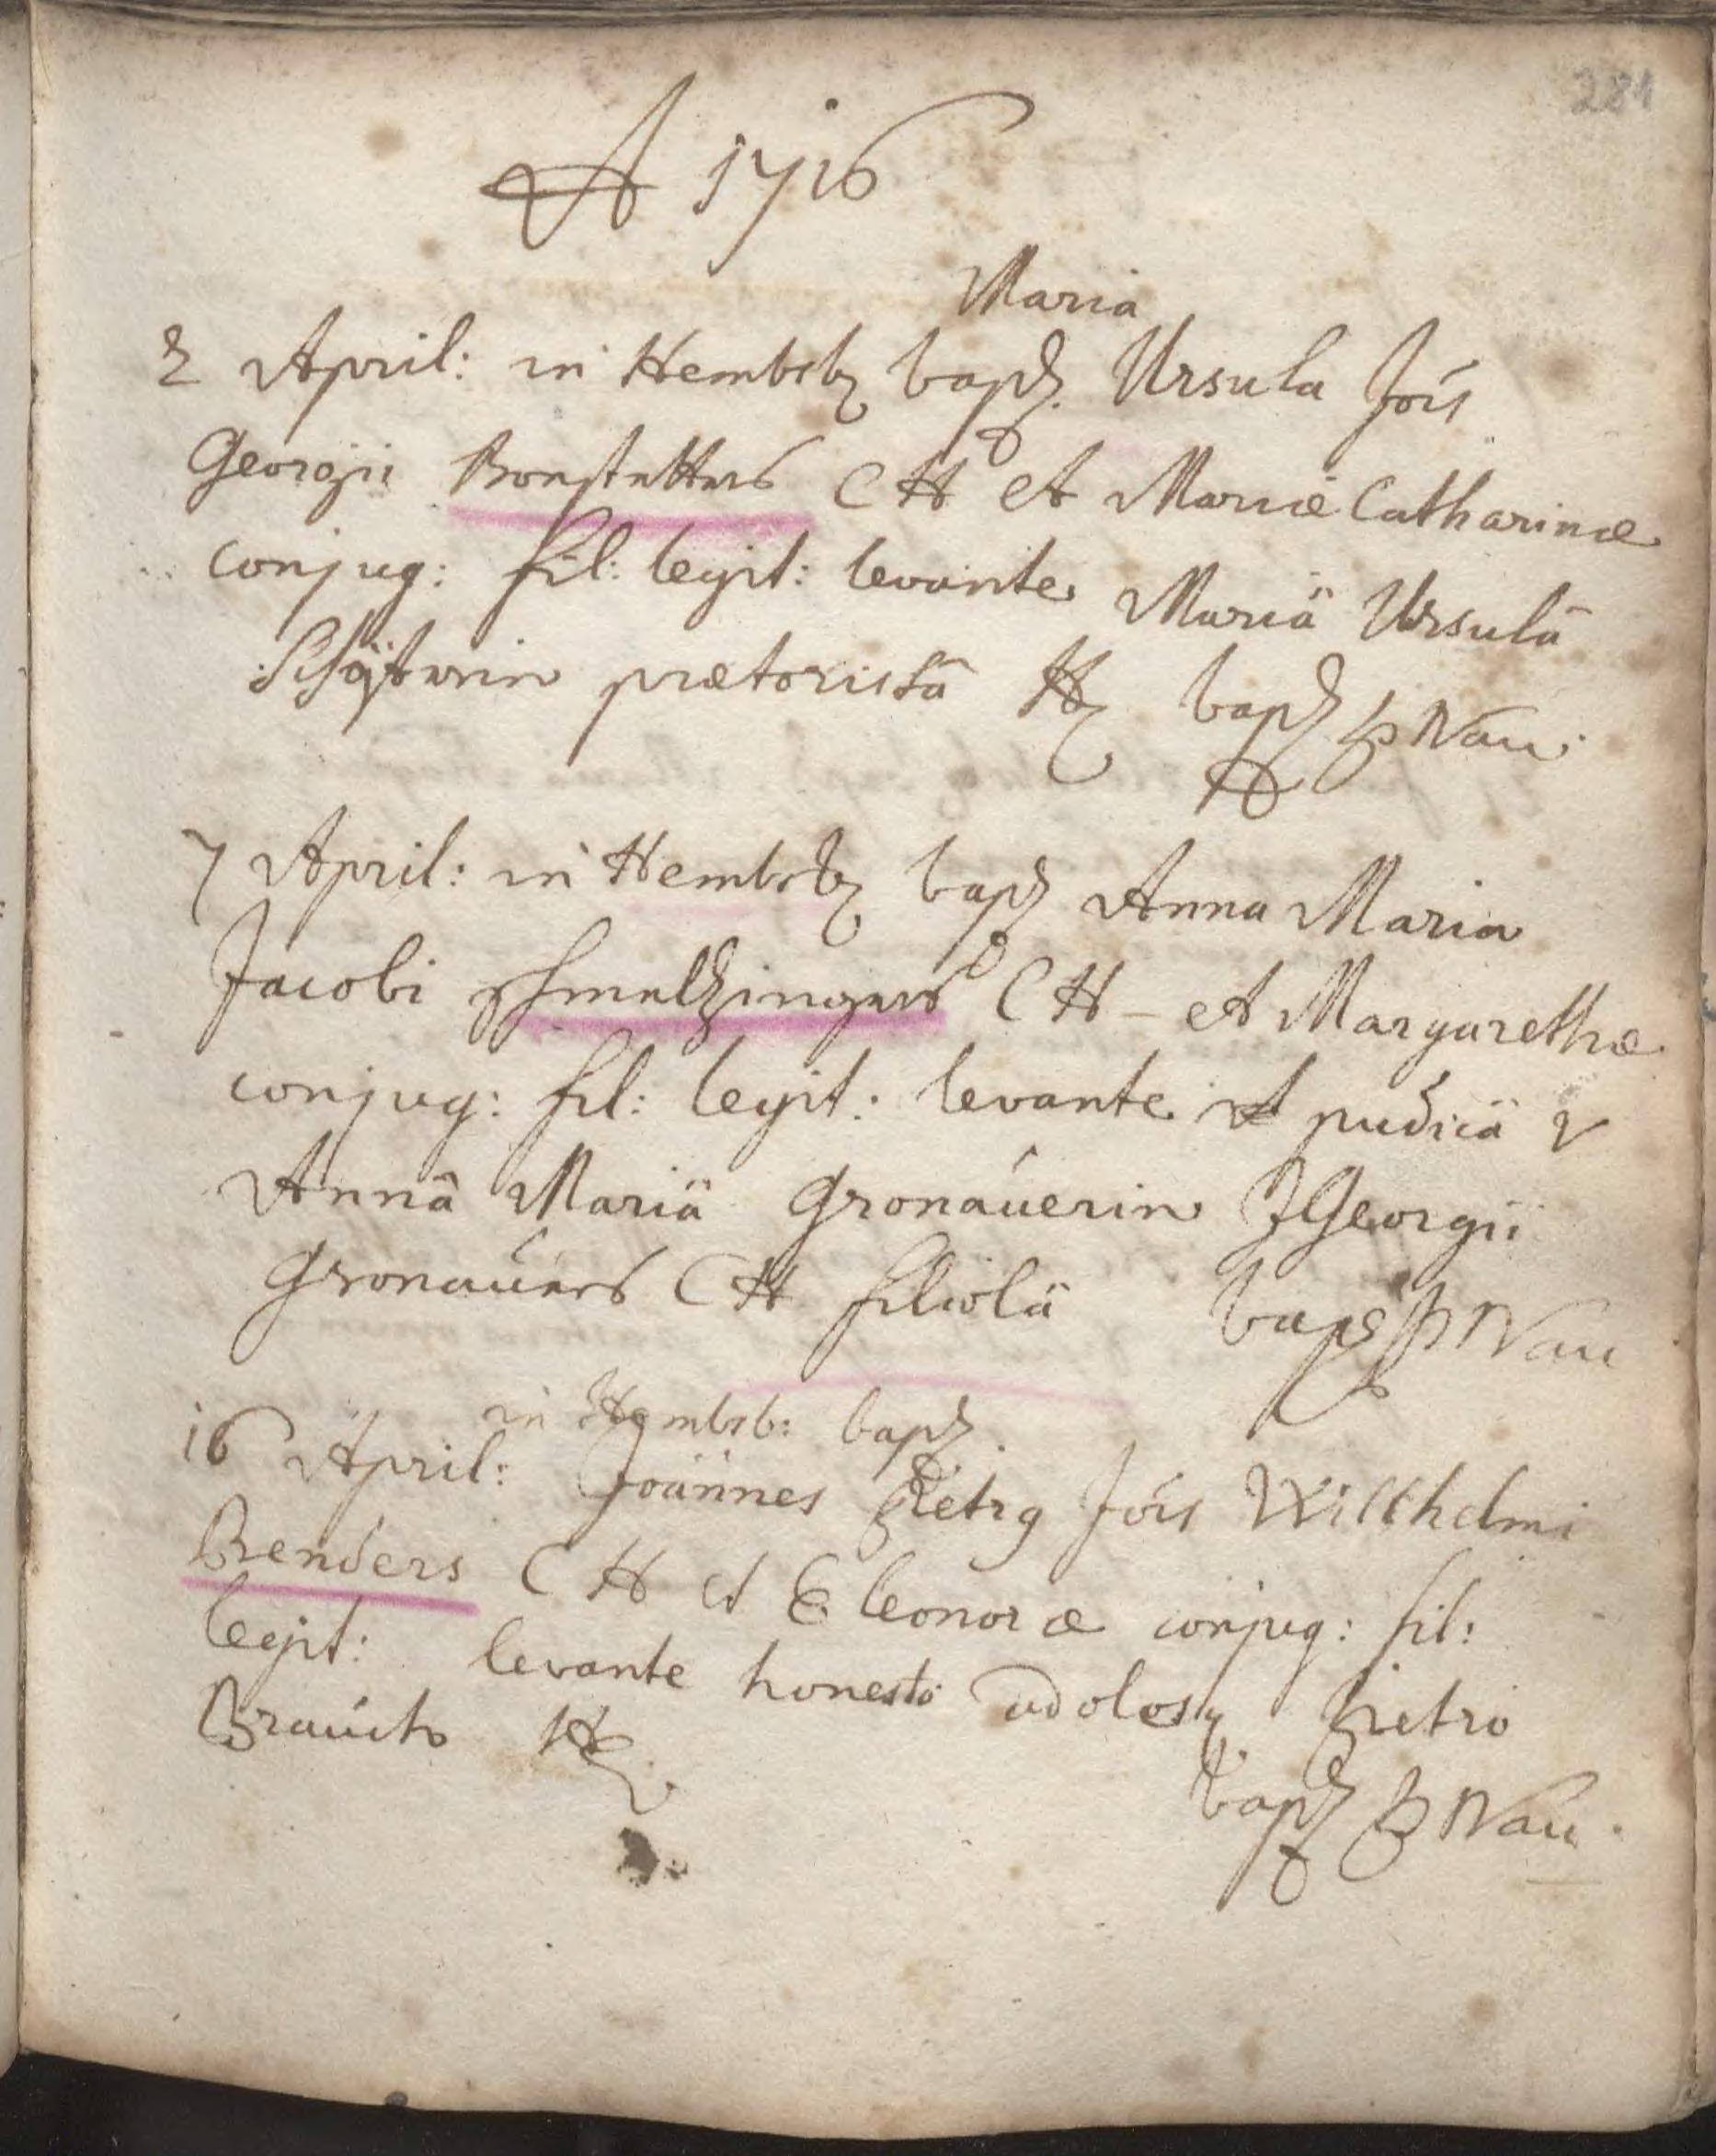 281
A 1716
Maria
2 April: in Hembsb bapt. Ursula Jois
Georgii Bonstetters C H et Mariæ Catharinæ
conjug: fil: legit: levante Mariä Ursulâ
prætorissâ H bapt P Nau
7 April: in Hembsb bapt Anna Maria
Jacobi Schmeltzingers C H - et Margarethæ
conjug: fil: legit: levante pudicä
Annâ Mariä Gronauerin J Georgii
Gronauers C H filiolä bapt P Nau
in Hembsb: bapt
16 April: Joannes Petrg Jois Willhelmi
Benders C H et Eleonoræ conjug: fil:
legit: levante honesto adolesc Petro
Brauch H
bapt P Nau